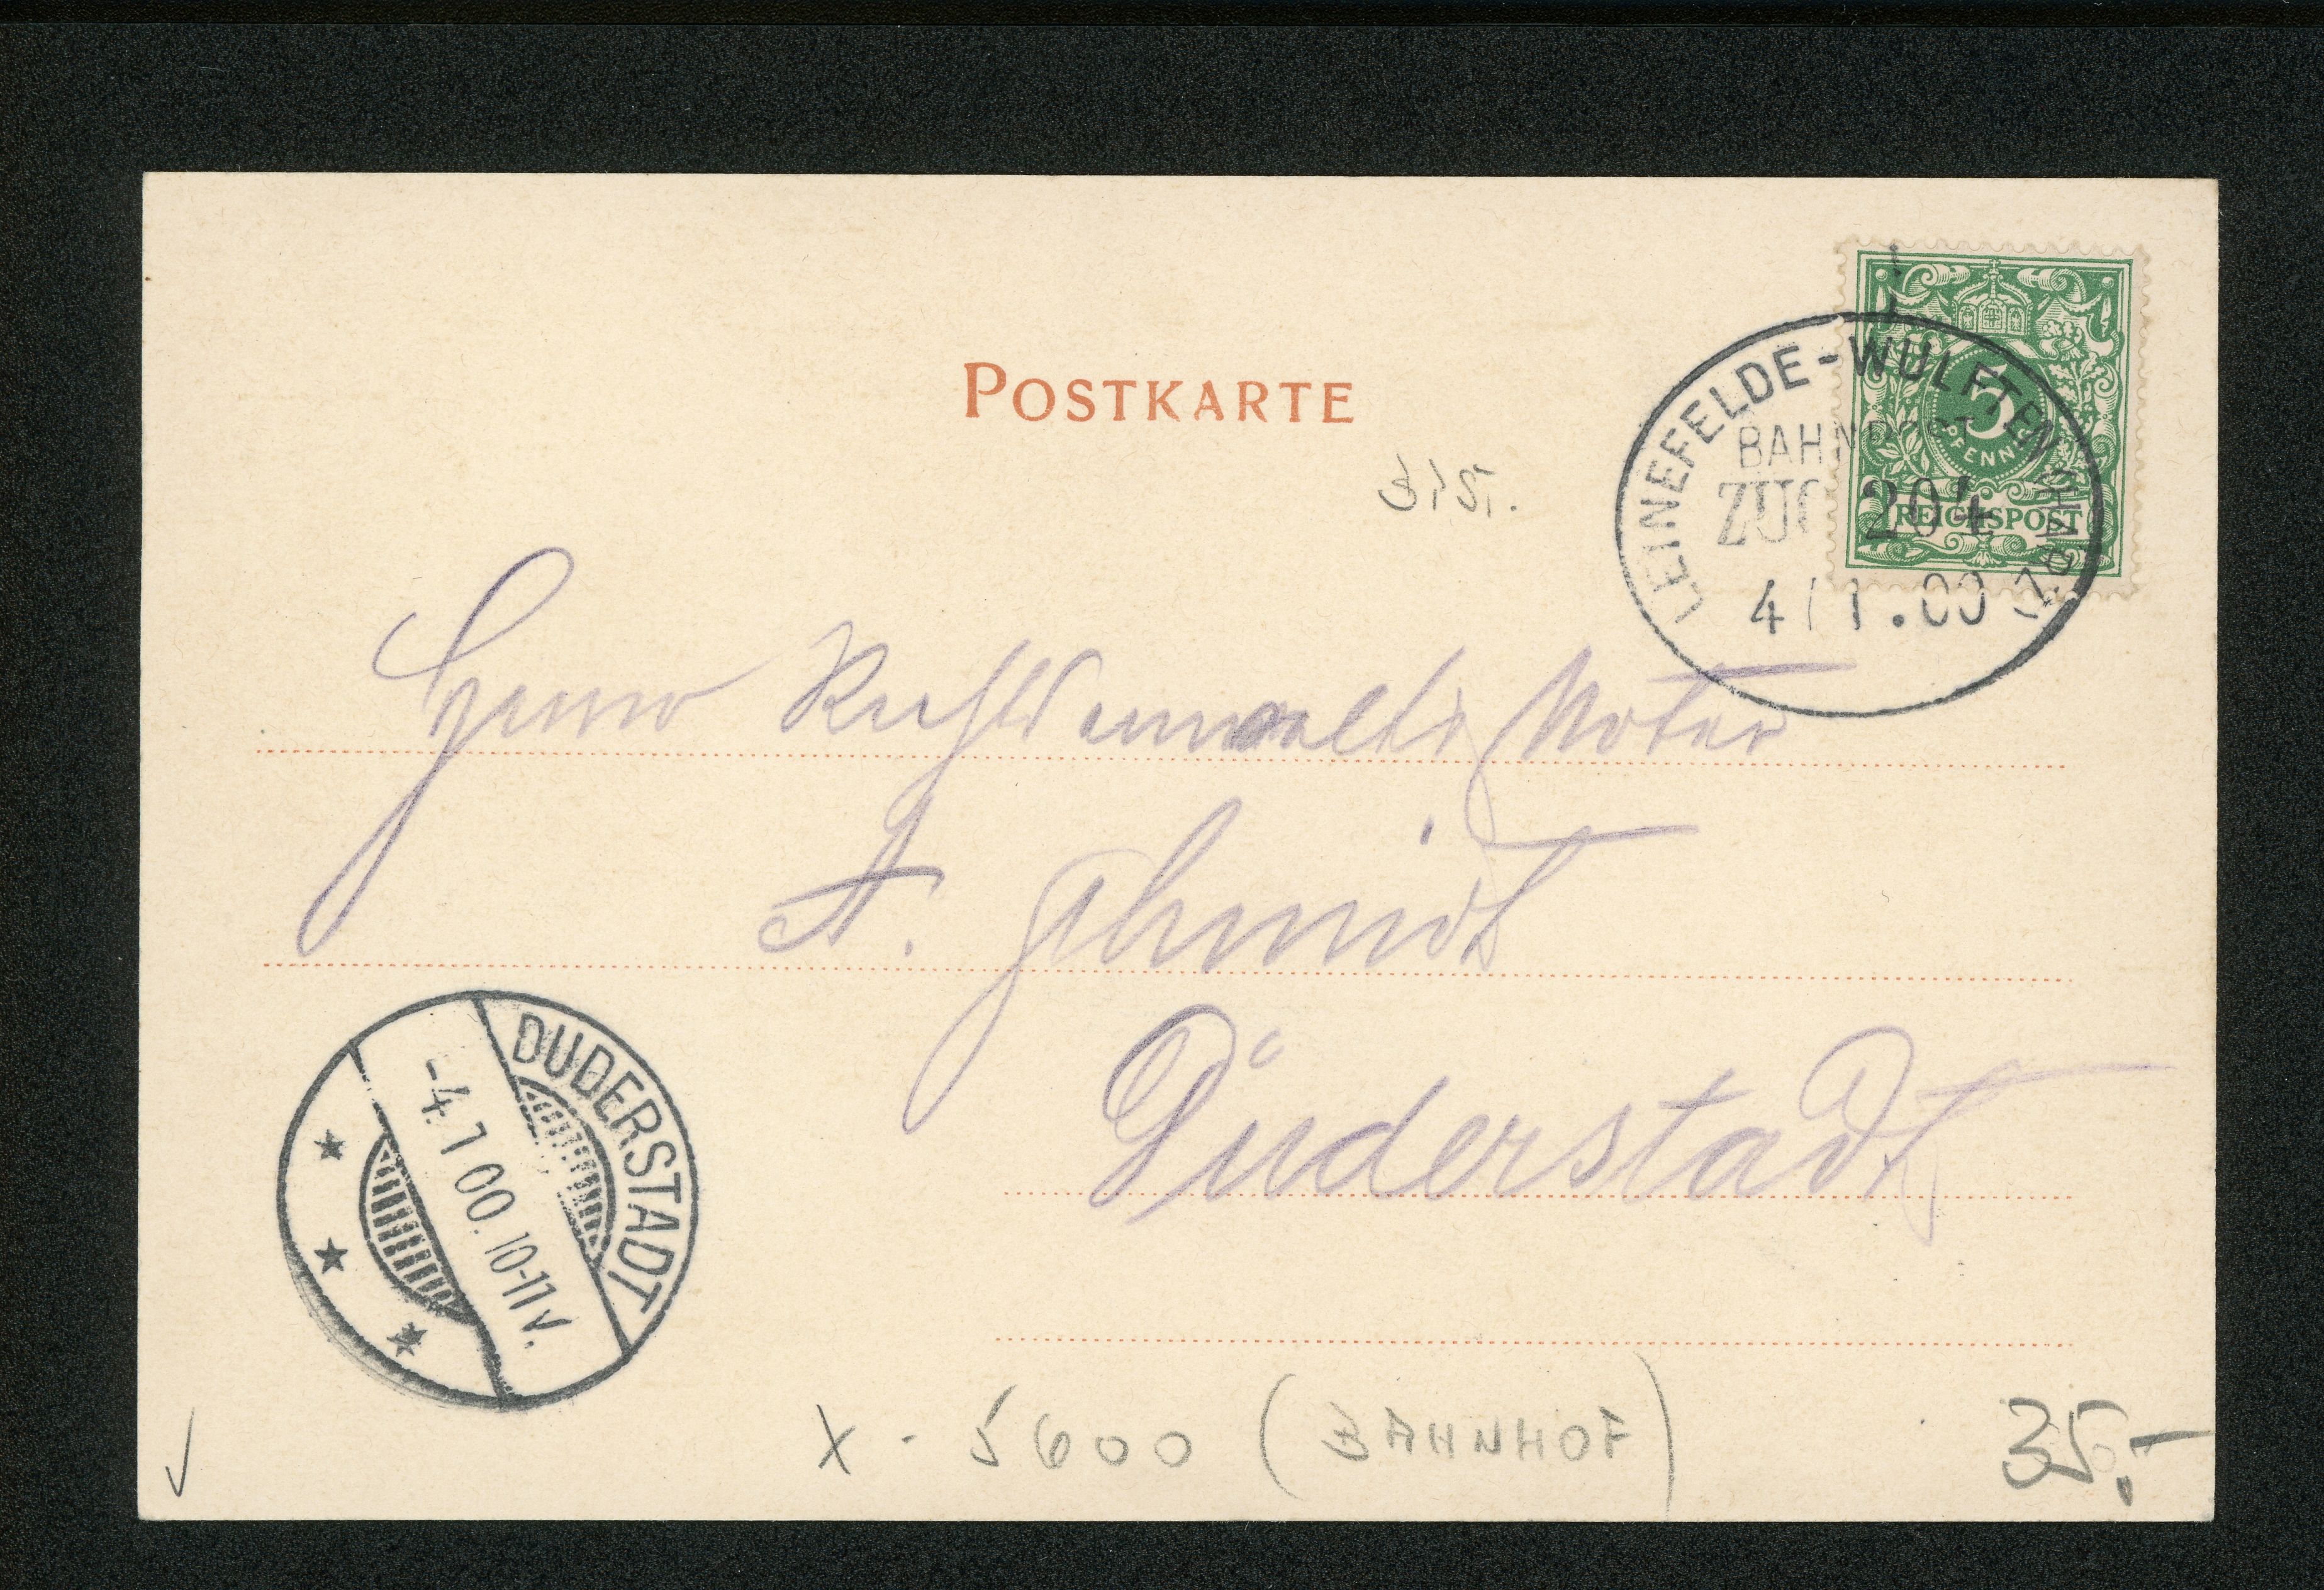 POSTKARTE
LEINEFELDE-WULFTEN (HARZ)
BAHNPOST
ZUG 204
4/1.00
5
PFENNIG
REICHSPOST
Herrn Rechtsanwalt & Notar
A. Schmidt
Duderstadt
DUDERSTADT
-4.1 00. 10-11 V.
X - 5600 (BAHNHOF)
35.-